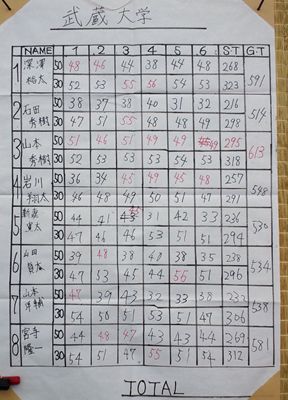 武蔵大学
NAME 1 2 3 4 5 6 ST GT
1 深澤 50 48 46 44 38 44 48 268
太 30 52 53 55 56 54 53 323 591
2 石田 50 38 37 38 40 31 32 216
秀樹 30 47 51 55 48 48 49 298 514
3 山本 50 51 46 51 49 49 49 295
秀樹 30 52 53 53 53 54 53 318 613
4 岩川 50 36 34 45 49 45 48 257
翔太 30 46 48 49 50 51 47 291 548
5 50 44 41 31 42 33 236
太 30 47 46 46 53 51 51 294 530
6 山田 50 39 48 38 40 38 35 238
30 47 53 45 44 56 51 296 534
7 山本 50 47 39 43 32 33 38 232
洋輔 30 54 50 51 53 51 47 306 538
8 50 44 48 47 43 43 44 269
隆一 30 54 51 47 55 51 54 312 581
TOTAL